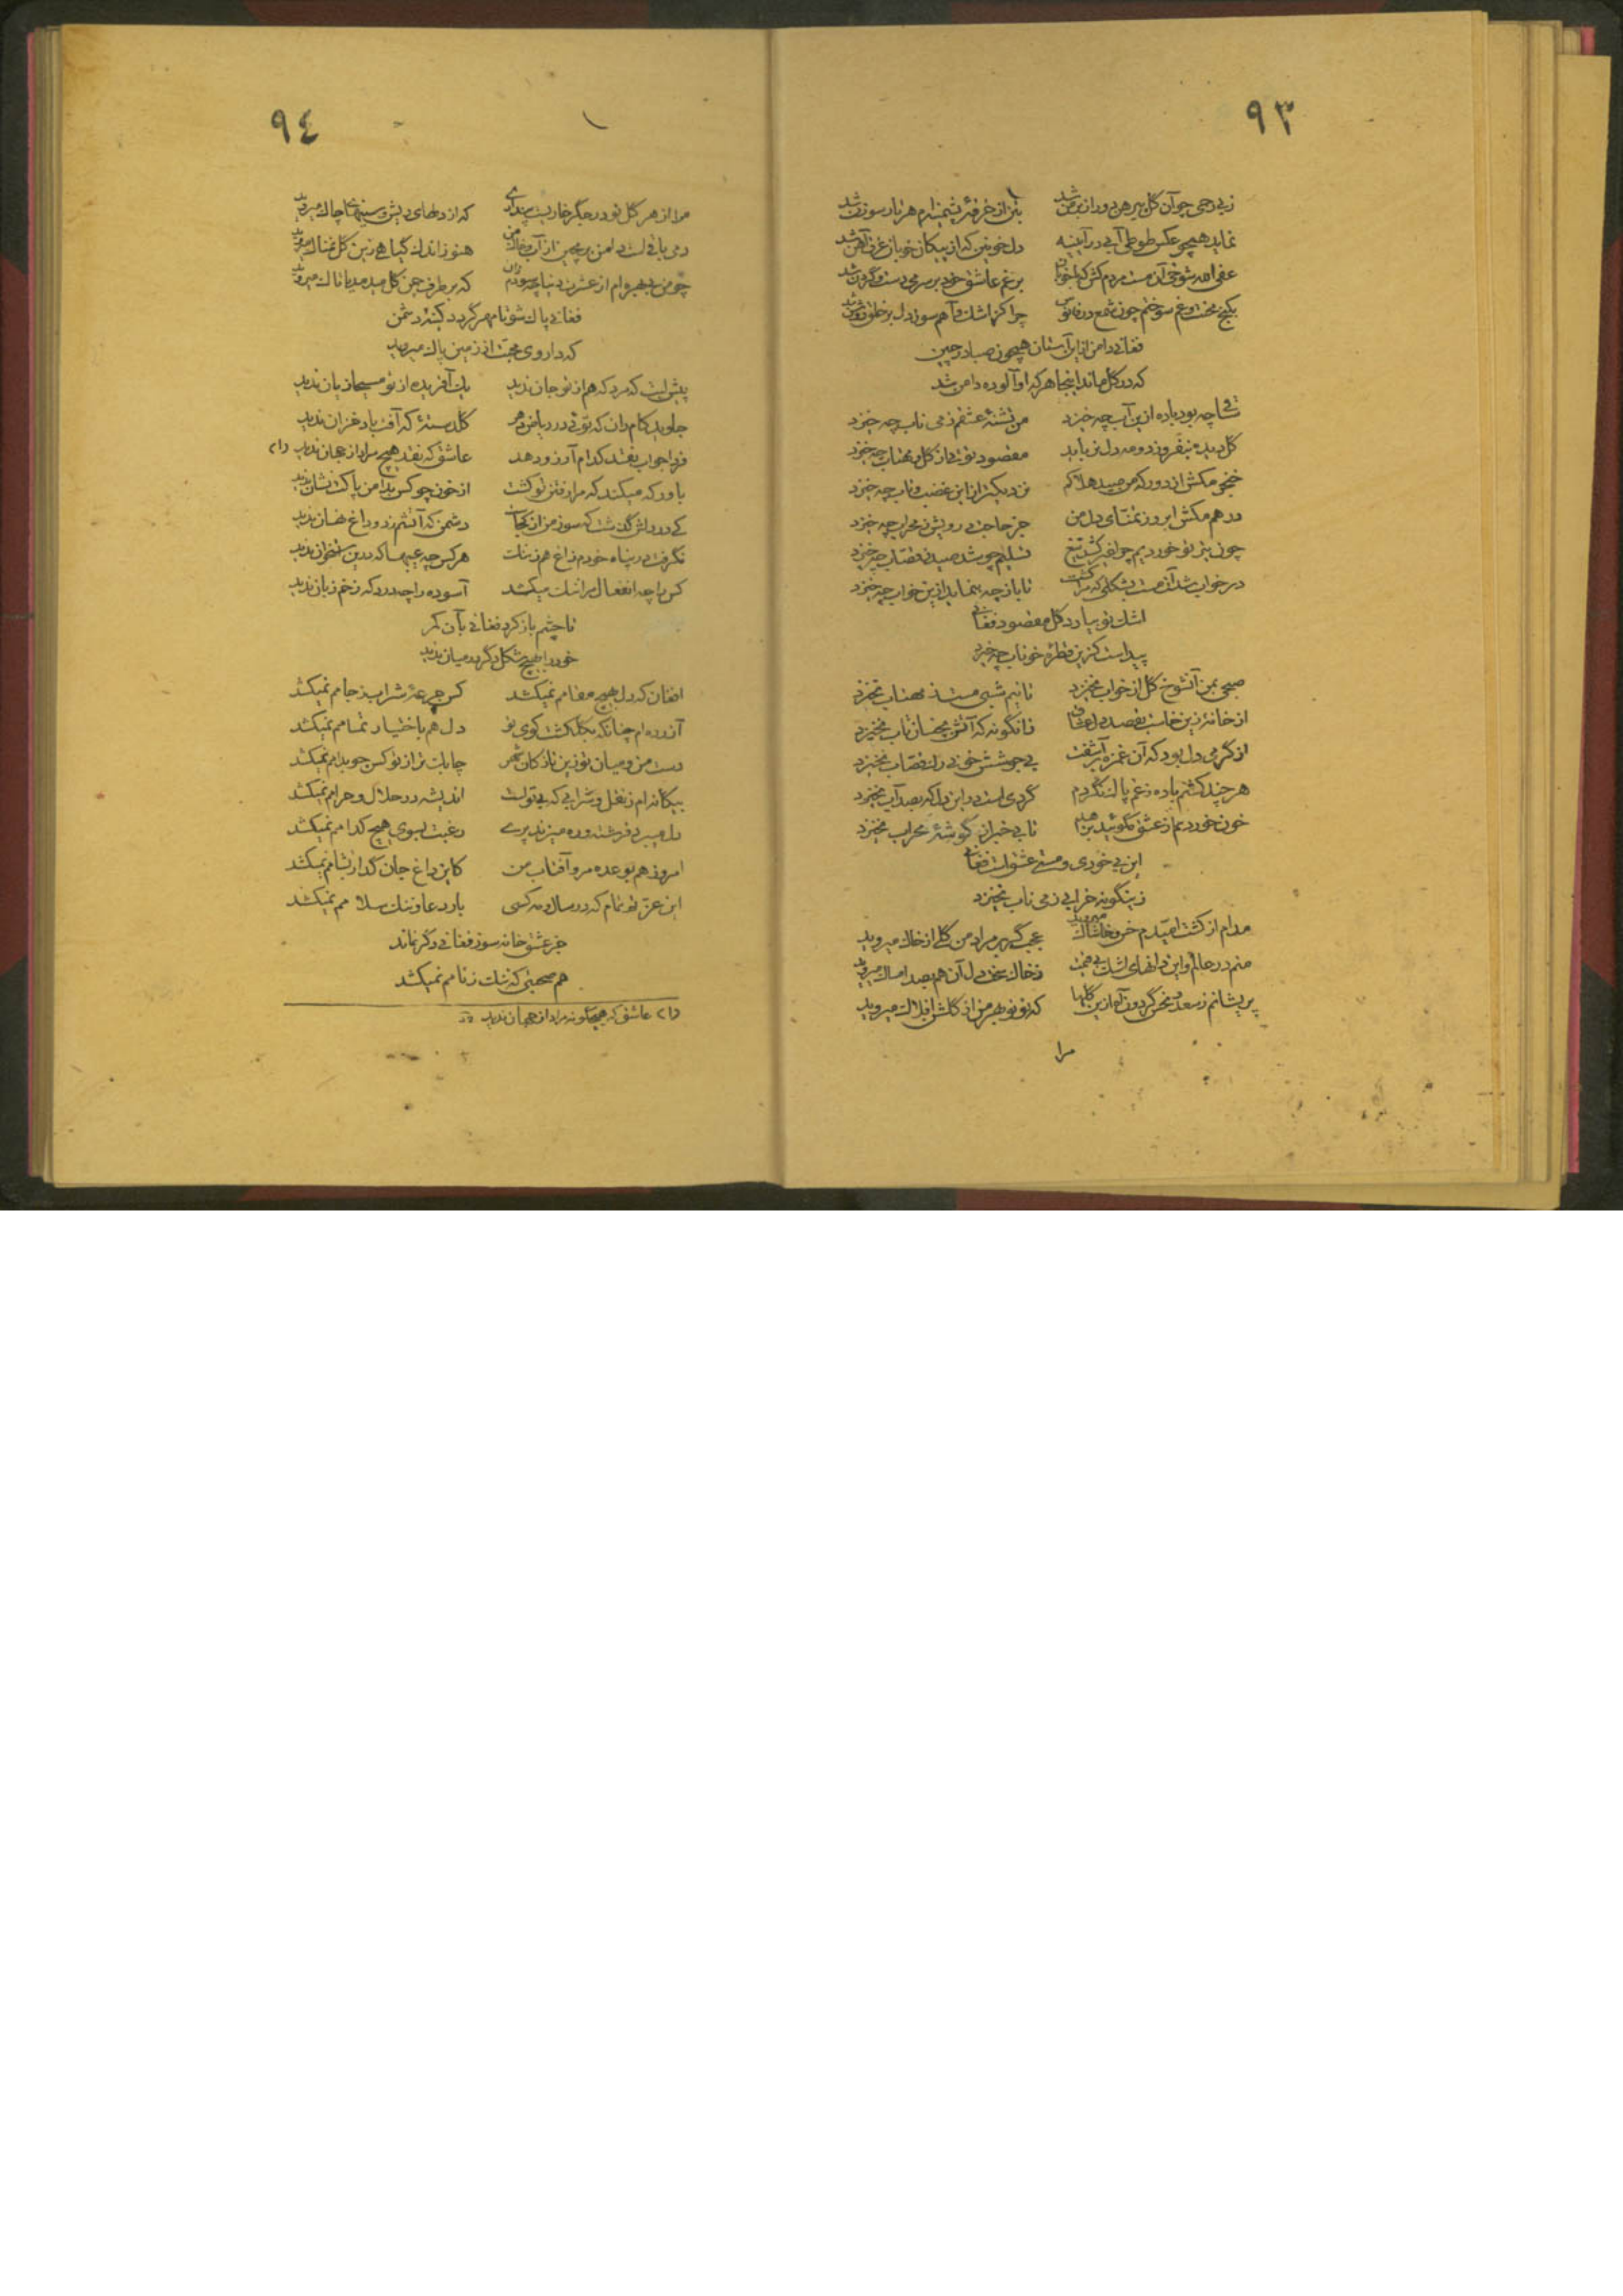 ٩٣
ز بیرحمی چو آن گل پیرهن دور از بر من شد بتن از خرقهٔ پشمینه‌ام هر تار سوزن شد
نماید همچو عکس طوطی آبی در آیینه دل خونین که از پیکان خوبان غرق آهن شد
عفی الله شوخی آن مست مردم کش که بر غم عاشق خود بر سر می دست و گردن شد
بکنج محنت و غم سوختم چون شمع در فانوس چرا کز اشک و آهم سوز دل بر خلق روشن شد
فغانی دامن از این آستان همچون صبا در چین
که در گل ماند اینجا هر که او آلوده دامن شد
ساقی چه بود باده ازین آب چه خیزد من تشنهٔ عشقم ز می ناب چه خیزد
گل دیده نیفروزد و مه دل نرباید مقصود تویی از گل و مهتاب چه خیزد
خنجر مکش از دور که من صید هلاکم نزدیکتر از این غضب و تاب چه خیزد
درهم مکش ابرو ز تمنای دل من جز حاجت درویش ز محراب چه خیزد
چون تیر تو خوردیم چو تیغ تسلیم چو شد صید ز قصاب چه خیزد
در خواب شد آن مست بشکلی که مرا کشت تا باز چه بنماید ازین خواب چه خیزد
اشک تو بیارد گل مقصود فغانی
پیداست کزین قطرهٔ خوناب چه خیزد
صبحی بمن آنشوخ گل از خواب نخیزد تا نیم شبی مست ز مهتاب نخیزد
از خانهٔ زین خاست بقصد دل عشاق زانگونه که آتش بچسان تاب نخیزد
از گرمی دل بود که آن غمزه برآشفت بی جوشش خونی دل قصاب نخیزد
هر چند کشم باده ز غم پاک نگردم گردی است در این دل که بصد آب نخیزد
خون خوردنم از عشق مگویید بزاهد تا بی خبر از گوشهٔ محراب نخیزد
این بی خودی و مستی عشق است فغانی
زینگونه خرابی ز می ناب نخیزد
مدام از کشت امیدم خس و خاشاک میروید عجب گر بر مراد من گلی از خاک میروید
منم در عالم و این دانهای اشک بی حجت ز خاک سخت دل آن هم بصد امساک میروید
پریشانم ز سعد و نحس گردون آه ازین گلها که نو نو بهر من از گلشن افلاک میروید
مرا
٩٤
مرا از هر گل نو در جگر خاریست پنداری که از دلهای ریش و سینهای چاک میروید
دمی باقیست دامن بر مچین از آب و خاک من هنوز اندک گیاهی زین گل نمناک میروید
چو من بی بهره‌ام از عشرت دنیا چه سود که بر طرف چمن گل میدمد یا تاک میروید
فغانی پاک شو تا مهر گردد کینهٔ دشمن
که داروی محبت از زمین پاک میروید
پیش لبت که مرد که هم از تو جان ندید یک آفریده از تو مسیحا زیان ندید
جاوید کام دان که تویی در ریاض دهر گلدستهٔ که آفت باد خزان ندید
فردا جواب نقد کدام آرزو دهد عاشق که نقد هیچ مراد از جهان ندید (١)
باور که میکند که مرا رفتن تو کشت از خون چو کس بدامن پاکت نشان ندید
کی در دلش گذشت که سوز من از کجاست دشمن که آتشم زد و داغ نهان ندید
نگرفت در پناه خودم زاغ هم ز ننگ هر کس چه عیبهاست که در این استخوان ندید
کس را چه انفعال مرا اشک میکشد آسوده را چه درد که زخم زبان ندید
تا چشم باز کرد فغانی بآن کمر
خود را بهیچ شکل دگر در میان ندید
افغان که دل بهیچ مقامم نمیکشد کس جرعهٔ شراب ز جامم نمیکشد
آزرده‌ام چنانکه بگلگشت کوی تو دل هم باختیار تمامم نمیکشد
دست من و میان تو زین نازکان شهر چابک‌تر از تو کس چو بدامم نمیکشد
بیگانه‌ام ز نقل و شرابی که بیتو است اندیشه در حلال و حرامم نمیکشد
دل میبرد فرشته و ره میزند پری رغبت بسوی هیچ کدامم نمیکشد
امروز هم بوعده مرو آفتاب من کاین داغ جان گداز بشامم نمیکشد
این عز تو تمام که در سال و مه کسی بار دعا و ننگ سلامم نمیکشد
جز عشق خانه سوز فغانی دگر نماند
هم صحبتی که ننگ ز نامم نمیکشد
(١) عاشق که هیچگونه مراد از جهان ندید